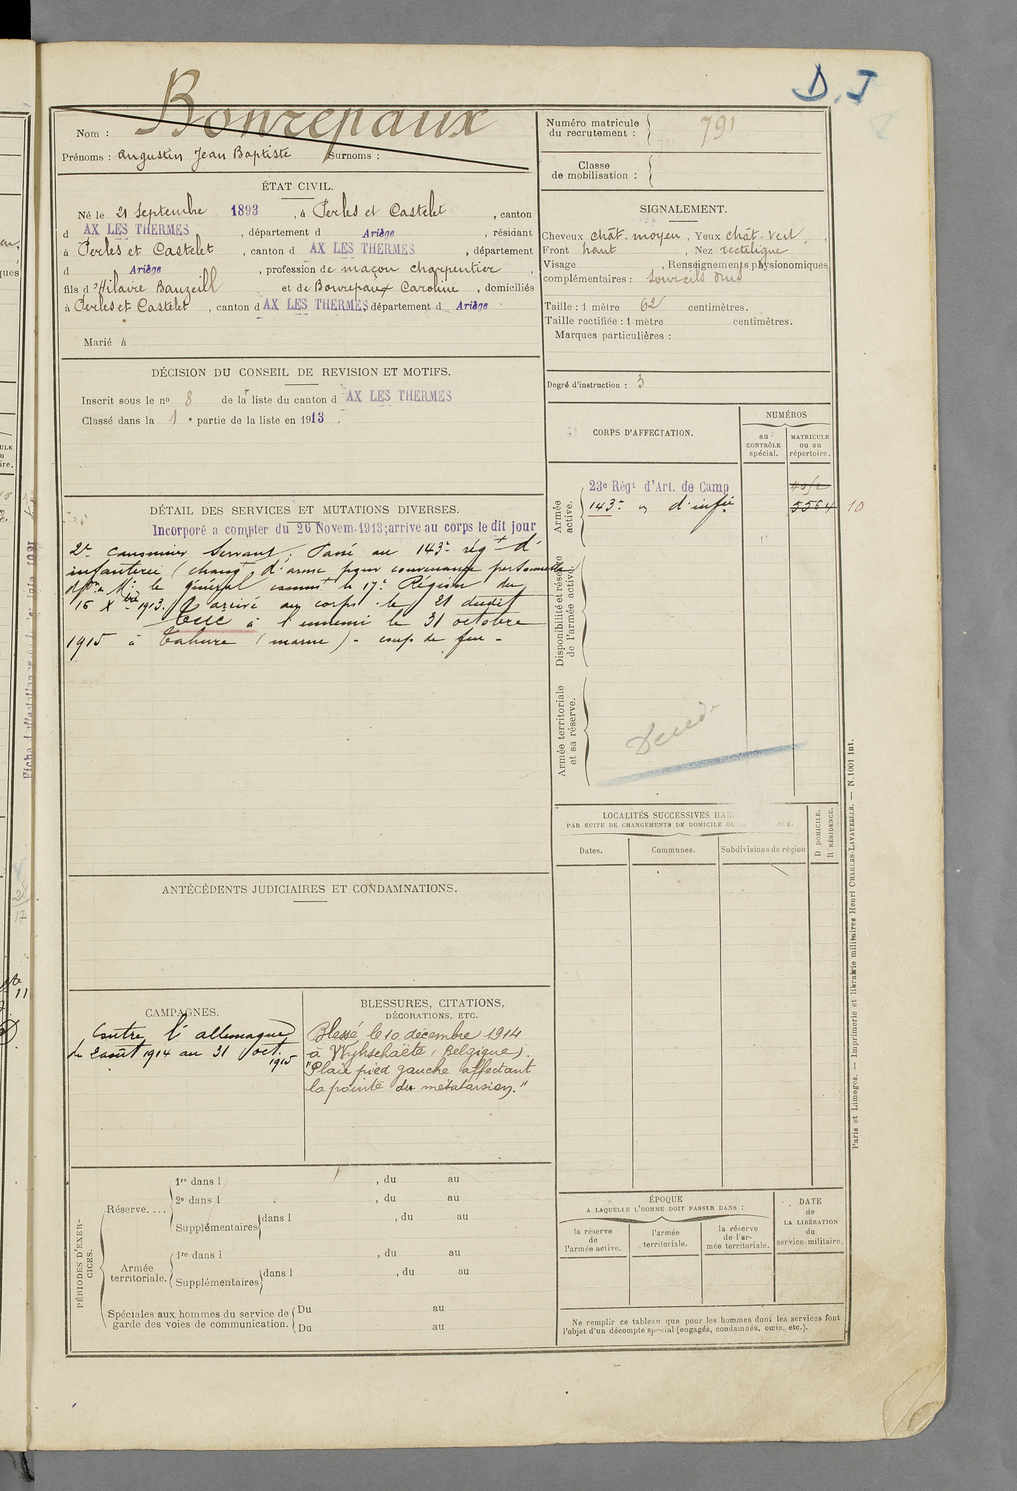 D. I
Nom : Bonrepaux
Prénoms : Augustin Jean Baptiste Surnoms :
Numéro matricule
du recrutement : 791
Classe
de mobilisation :
ÉTAT CIVIL.
Né le 21 Septembre 1893, à Perles et Castelet, canton
d AX LES THERMES, département d Ariège, résidant
à Perles et Castelet, canton d AX LES THERMES, département
d Ariège, profession de maçon charpentier,
fils d'Hilaire Bauzeill et de Bonrepaux Caroline, domiciliés
à Perles et Castelet, canton d AX LES THERMES, département d Ariège
Marié à
SIGNALEMENT.
Cheveux chât. moyen, Yeux chât. vert,
Front haut, Nez rectiligne
Visage , Renseignements physionomiques
complémentaires : Sourcils drus
Taille : 1 mètre 62 centimètres.
Taille rectifiée : 1 mètre centimètres.
Marques particulières :
Degré d'instruction : 3
DÉCISION DU CONSEIL DE REVISION ET MOTIFS.
Inscrit sous le no 8 de la liste du canton d AX LES THERMES
Classé dans la 1e partie de la liste en 1913.
CORPS D'AFFECTATION.
NUMÉROS
au
CONTRÔLE
spécial.
MATRICULE
ou au
répertoire.
Armée
active.
23e Régt d'Art. de Camp
143e " d'infie 5564 10
Disponibilité et réserve
de l'armée active.
Armée territoriale
et sa réserve.
Décédé
DÉTAIL DES SERVICES ET MUTATIONS DIVERSES.
Incorporé a compter du 26 Novem. 1913; arrive au corps le dit jour
2e canonnier Servant. Passé au 143e régt d'
infanterie (changt d'arme pour convenance personnelle
le général commt la 17e Région du
16 Xbre 1913. arrivé au corps le 21 dudit
Tué à l'ennemi le 31 octobre
1915 à Tahure (marne) - coup de feu -
LOCALITÉS SUCCESSIVES
PAR SUITE DE CHANGEMENTS DE DOMICILE OU
Dates.
Communes.
Subdivisions de région
D DOMICILE.
R RÉSIDENCE.
ANTÉCÉDENTS JUDICIAIRES ET CONDAMNATIONS.
CAMPAGNES.
Contre l'allemagne
du 2 août 1914 au 31 oct.
1915
BLESSURES, CITATIONS,
DÉCORATIONS, ETC.
Blessé le 10 décembre 1914
à Wyhschaëte (Belgique).
"Plaie pied gauche affectant
la pointe du métatarsien."
PÉRIODES D'EXER-
CICES.
Réserve....
1re dans l , du au
2e dans l , du au
Supplémentaires dans l , du au
Armée
territoriale.
1re dans l , du au
Supplémentaires dans l , du au
Spéciales aux hommes du service de
garde des voies de communication.
Du au
Du au
ÉPOQUE
A LAQUELLE L'HOMME DOIT PASSER DANS :
la réserve
de
l'armée active.
l'armée
territoriale.
la réserve
de l'ar-
mée territoriale.
DATE
de
LA LIBÉRATION
du
service militaire.
Ne remplir ce tableau que pour les hommes dont les services font
l'objet d'un décompte spécial (engagés, condamnés, omis, etc.).
Paris et Limoges. — Imprimerie et librairie militaires Henri CHARLES-LAVAUZELLE. — N. 1001 Int.